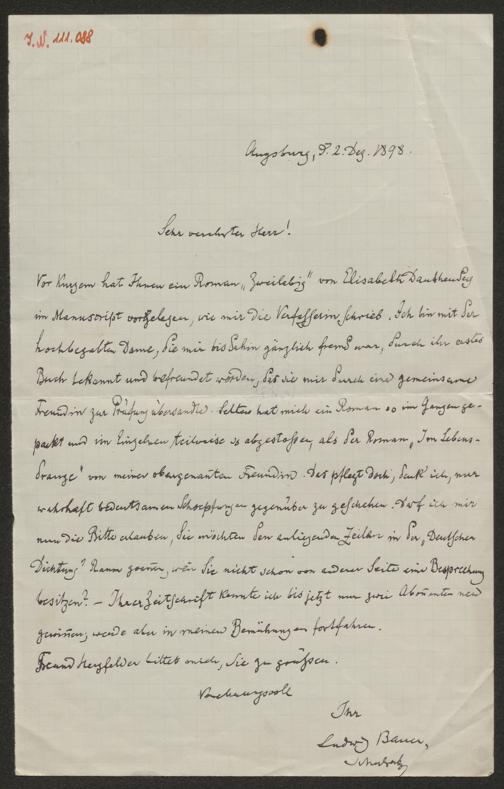 J.N. 111.088
Augsburg, d. 2. Dez. 1898.
Sehr verehrter Herr!
Vor Kurzem hat Ihnen ein Roman „Zweilebig" von Elisabeth Dauthendey
im Manuscript vorgelegen, wie mir die Verfasserin schrieb. Ich bin mit der
hochbegabten Dame, die mir bis dahin gänzlich fremd war, durch ihr erstes
Buch bekannt und befreundet worden, das sie mir durch eine gemeinsame
Freundin zur Prüfung übersandte. Selten hat mich ein Roman so im Ganzen ge-
packt und im Einzelnen teilweise so abgestoßen, als der Roman „Im Lebens-
drange" von meiner obengenannten Freundin. Das pflegt doch, denk' ich, nur
wahrhaft bedeutsamen Schoepfungen gegenüber zu geschehen. Darf ich mir
nun die Bitte erlauben, Sie möchten den anliegenden Zeilen in der „Deutschen
Dichtung" Raum goennen, wenn Sie nicht schon von anderer Seite eine Besprechung
besitzen? – Ihrer Zeitschrift konnte ich bis jetzt nur zwei Abonnenten neu
gewinnen, werde aber in meinen Bemühungen fortfahren.
Freund Herzfelder bittet mich, Sie zu grüßen.
Hochachtungsvoll
Ihr
Ludwig Bauer,